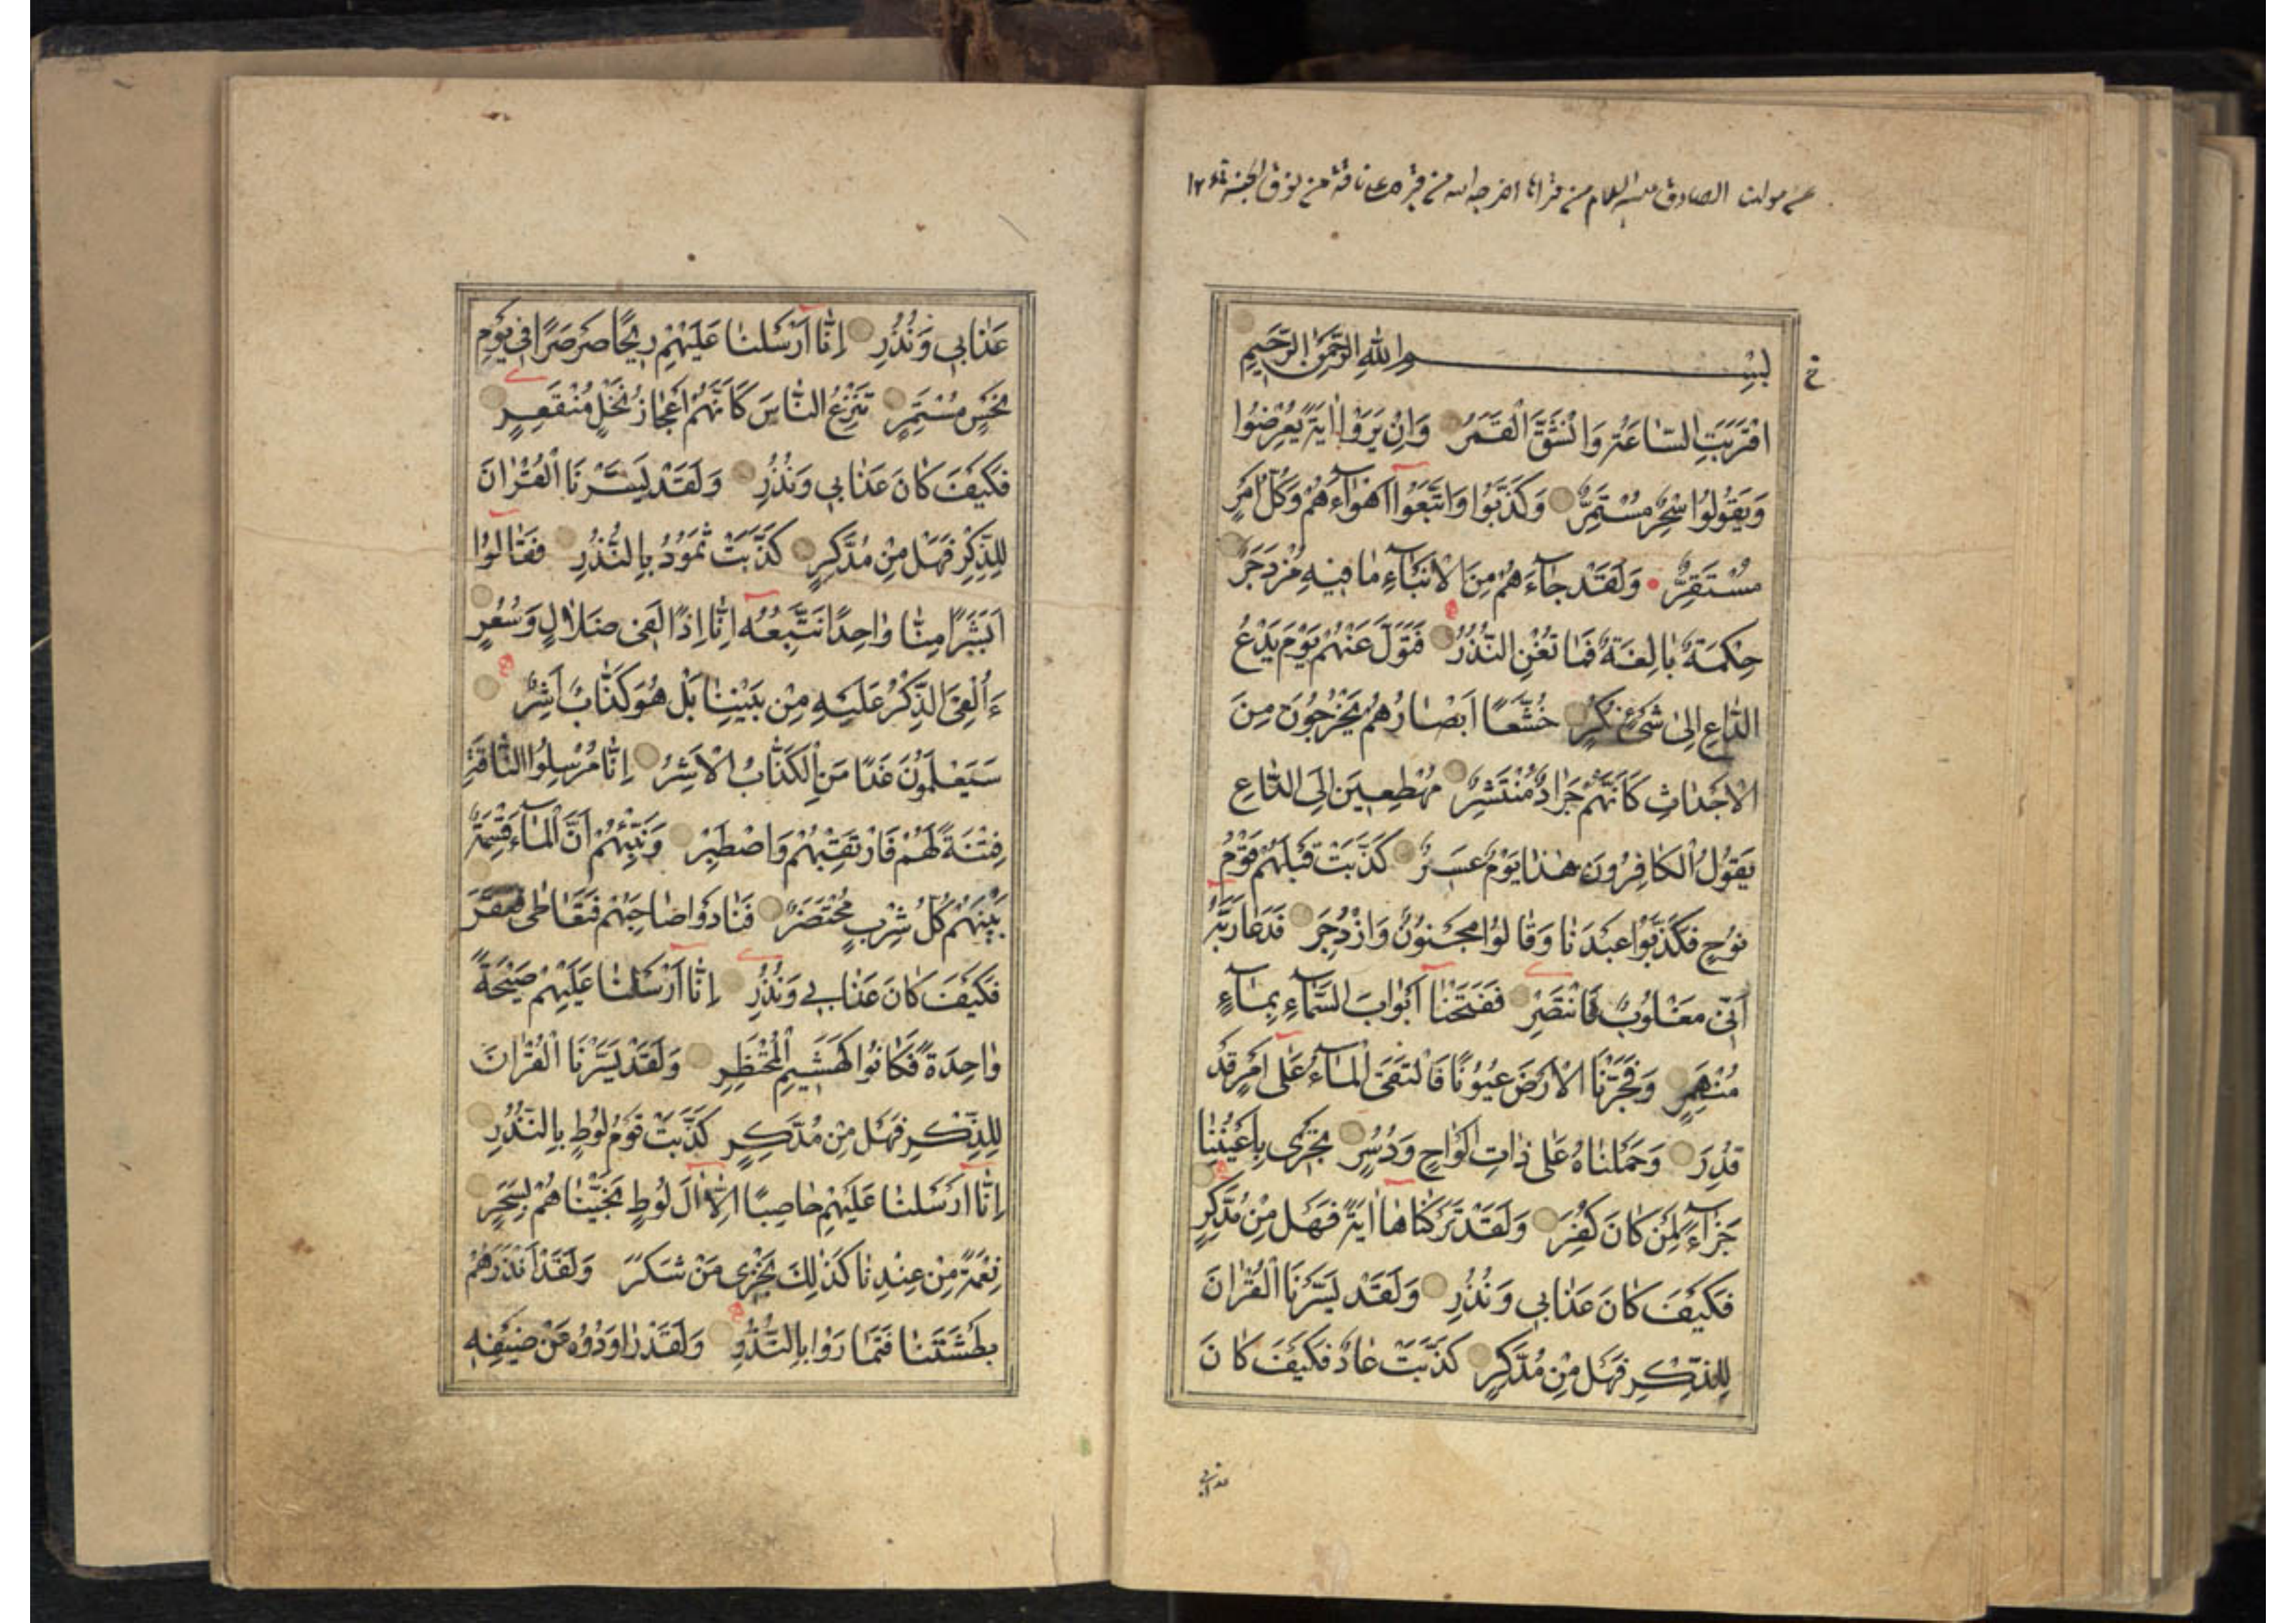 عن مولانا الصادق عليه السلام من قراها اخرجه الله من قبره على ناقة من نوق الجنة ١٢
بِسْمِ اللهِ الرَّحْمٰنِ الرَّحِيمِ
اقْتَرَبَتِ السَّاعَةُ وَانْشَقَّ الْقَمَرُ وَاِنْ يَرَوْا اٰيَةً يُعْرِضُوا
وَيَقُولُوا سِحْرٌ مُسْتَمِرٌّ وَكَذَّبُوا وَاتَّبَعُوا اَهْوَآءَهُمْ وَكُلُّ اَمْرٍ
مُسْتَقِرٌّ وَلَقَدْ جَآءَهُمْ مِنَ الْاَنْبَآءِ مَا فِيهِ مُزْدَجَرٌ
حِكْمَةٌ بَالِغَةٌ فَمَا تُغْنِ النُّذُرُ فَتَوَلَّ عَنْهُمْ يَوْمَ يَدْعُ
الدَّاعِ اِلٰى شَىْءٍ نُكُرٍ خُشَّعًا اَبْصَارُهُمْ يَخْرُجُونَ مِنَ
الْاَجْدَاثِ كَاَنَّهُمْ جَرَادٌ مُنْتَشِرٌ مُهْطِعِينَ اِلَى الدَّاعِ
يَقُولُ الْكَافِرُونَ هٰذَا يَوْمٌ عَسِرٌ كَذَّبَتْ قَبْلَهُمْ قَوْمُ
نُوحٍ فَكَذَّبُوا عَبْدَنَا وَقَالُوا مَجْنُونٌ وَازْدُجِرَ فَدَعَا رَبَّهُ
اَنِّى مَغْلُوبٌ فَانْتَصِرْ فَفَتَحْنَا اَبْوَابَ السَّمَآءِ بِمَآءٍ
مُنْهَمِرٍ وَفَجَّرْنَا الْاَرْضَ عُيُونًا فَالْتَقَى الْمَآءُ عَلٰى اَمْرٍ قَدْ
قُدِرَ وَحَمَلْنَاهُ عَلٰى ذَاتِ اَلْوَاحٍ وَدُسُرٍ تَجْرِى بِاَعْيُنِنَا
جَزَآءً لِمَنْ كَانَ كُفِرَ وَلَقَدْ تَرَكْنَاهَا اٰيَةً فَهَلْ مِنْ مُدَّكِرٍ
فَكَيْفَ كَانَ عَذَابِى وَنُذُرِ وَلَقَدْ يَسَّرْنَا الْقُرْاٰنَ
لِلذِّكْرِ فَهَلْ مِنْ مُدَّكِرٍ كَذَّبَتْ عَادٌ فَكَيْفَ كَانَ
عذابى
عَذَابِى وَنُذُرِ اِنَّا اَرْسَلْنَا عَلَيْهِمْ رِيحًا صَرْصَرًا فِى يَوْمِ
نَحْسٍ مُسْتَمِرٍّ تَنْزِعُ النَّاسَ كَاَنَّهُمْ اَعْجَازُ نَخْلٍ مُنْقَعِرٍ
فَكَيْفَ كَانَ عَذَابِى وَنُذُرِ وَلَقَدْ يَسَّرْنَا الْقُرْاٰنَ
لِلذِّكْرِ فَهَلْ مِنْ مُدَّكِرٍ كَذَّبَتْ ثَمُودُ بِالنُّذُرِ فَقَالُوا
اَبَشَرًا مِنَّا وَاحِدًا نَتَّبِعُهُ اِنَّا اِذًا لَفِى ضَلَالٍ وَسُعُرٍ
ءَاُلْقِىَ الذِّكْرُ عَلَيْهِ مِنْ بَيْنِنَا بَلْ هُوَ كَذَّابٌ اَشِرٌ
سَيَعْلَمُونَ غَدًا مَنِ الْكَذَّابُ الْاَشِرُ اِنَّا مُرْسِلُوا النَّاقَةِ
فِتْنَةً لَهُمْ فَارْتَقِبْهُمْ وَاصْطَبِرْ وَنَبِّئْهُمْ اَنَّ الْمَآءَ قِسْمَةٌ
بَيْنَهُمْ كُلُّ شِرْبٍ مُحْتَضَرٌ فَنَادَوْا صَاحِبَهُمْ فَتَعَاطٰى فَعَقَرَ
فَكَيْفَ كَانَ عَذَابِى وَنُذُرِ اِنَّا اَرْسَلْنَا عَلَيْهِمْ صَيْحَةً
وَاحِدَةً فَكَانُوا كَهَشِيمِ الْمُحْتَظِرِ وَلَقَدْ يَسَّرْنَا الْقُرْاٰنَ
لِلذِّكْرِ فَهَلْ مِنْ مُدَّكِرٍ كَذَّبَتْ قَوْمُ لُوطٍ بِالنُّذُرِ
اِنَّا اَرْسَلْنَا عَلَيْهِمْ حَاصِبًا اِلَّا اٰلَ لُوطٍ نَجَّيْنَاهُمْ بِسَحَرٍ
نِعْمَةً مِنْ عِنْدِنَا كَذٰلِكَ نَجْزِى مَنْ شَكَرَ وَلَقَدْ اَنْذَرَهُمْ
بَطْشَتَنَا فَتَمَارَوْا بِالنُّذُرِ وَلَقَدْ رَاوَدُوهُ عَنْ ضَيْفِهِ